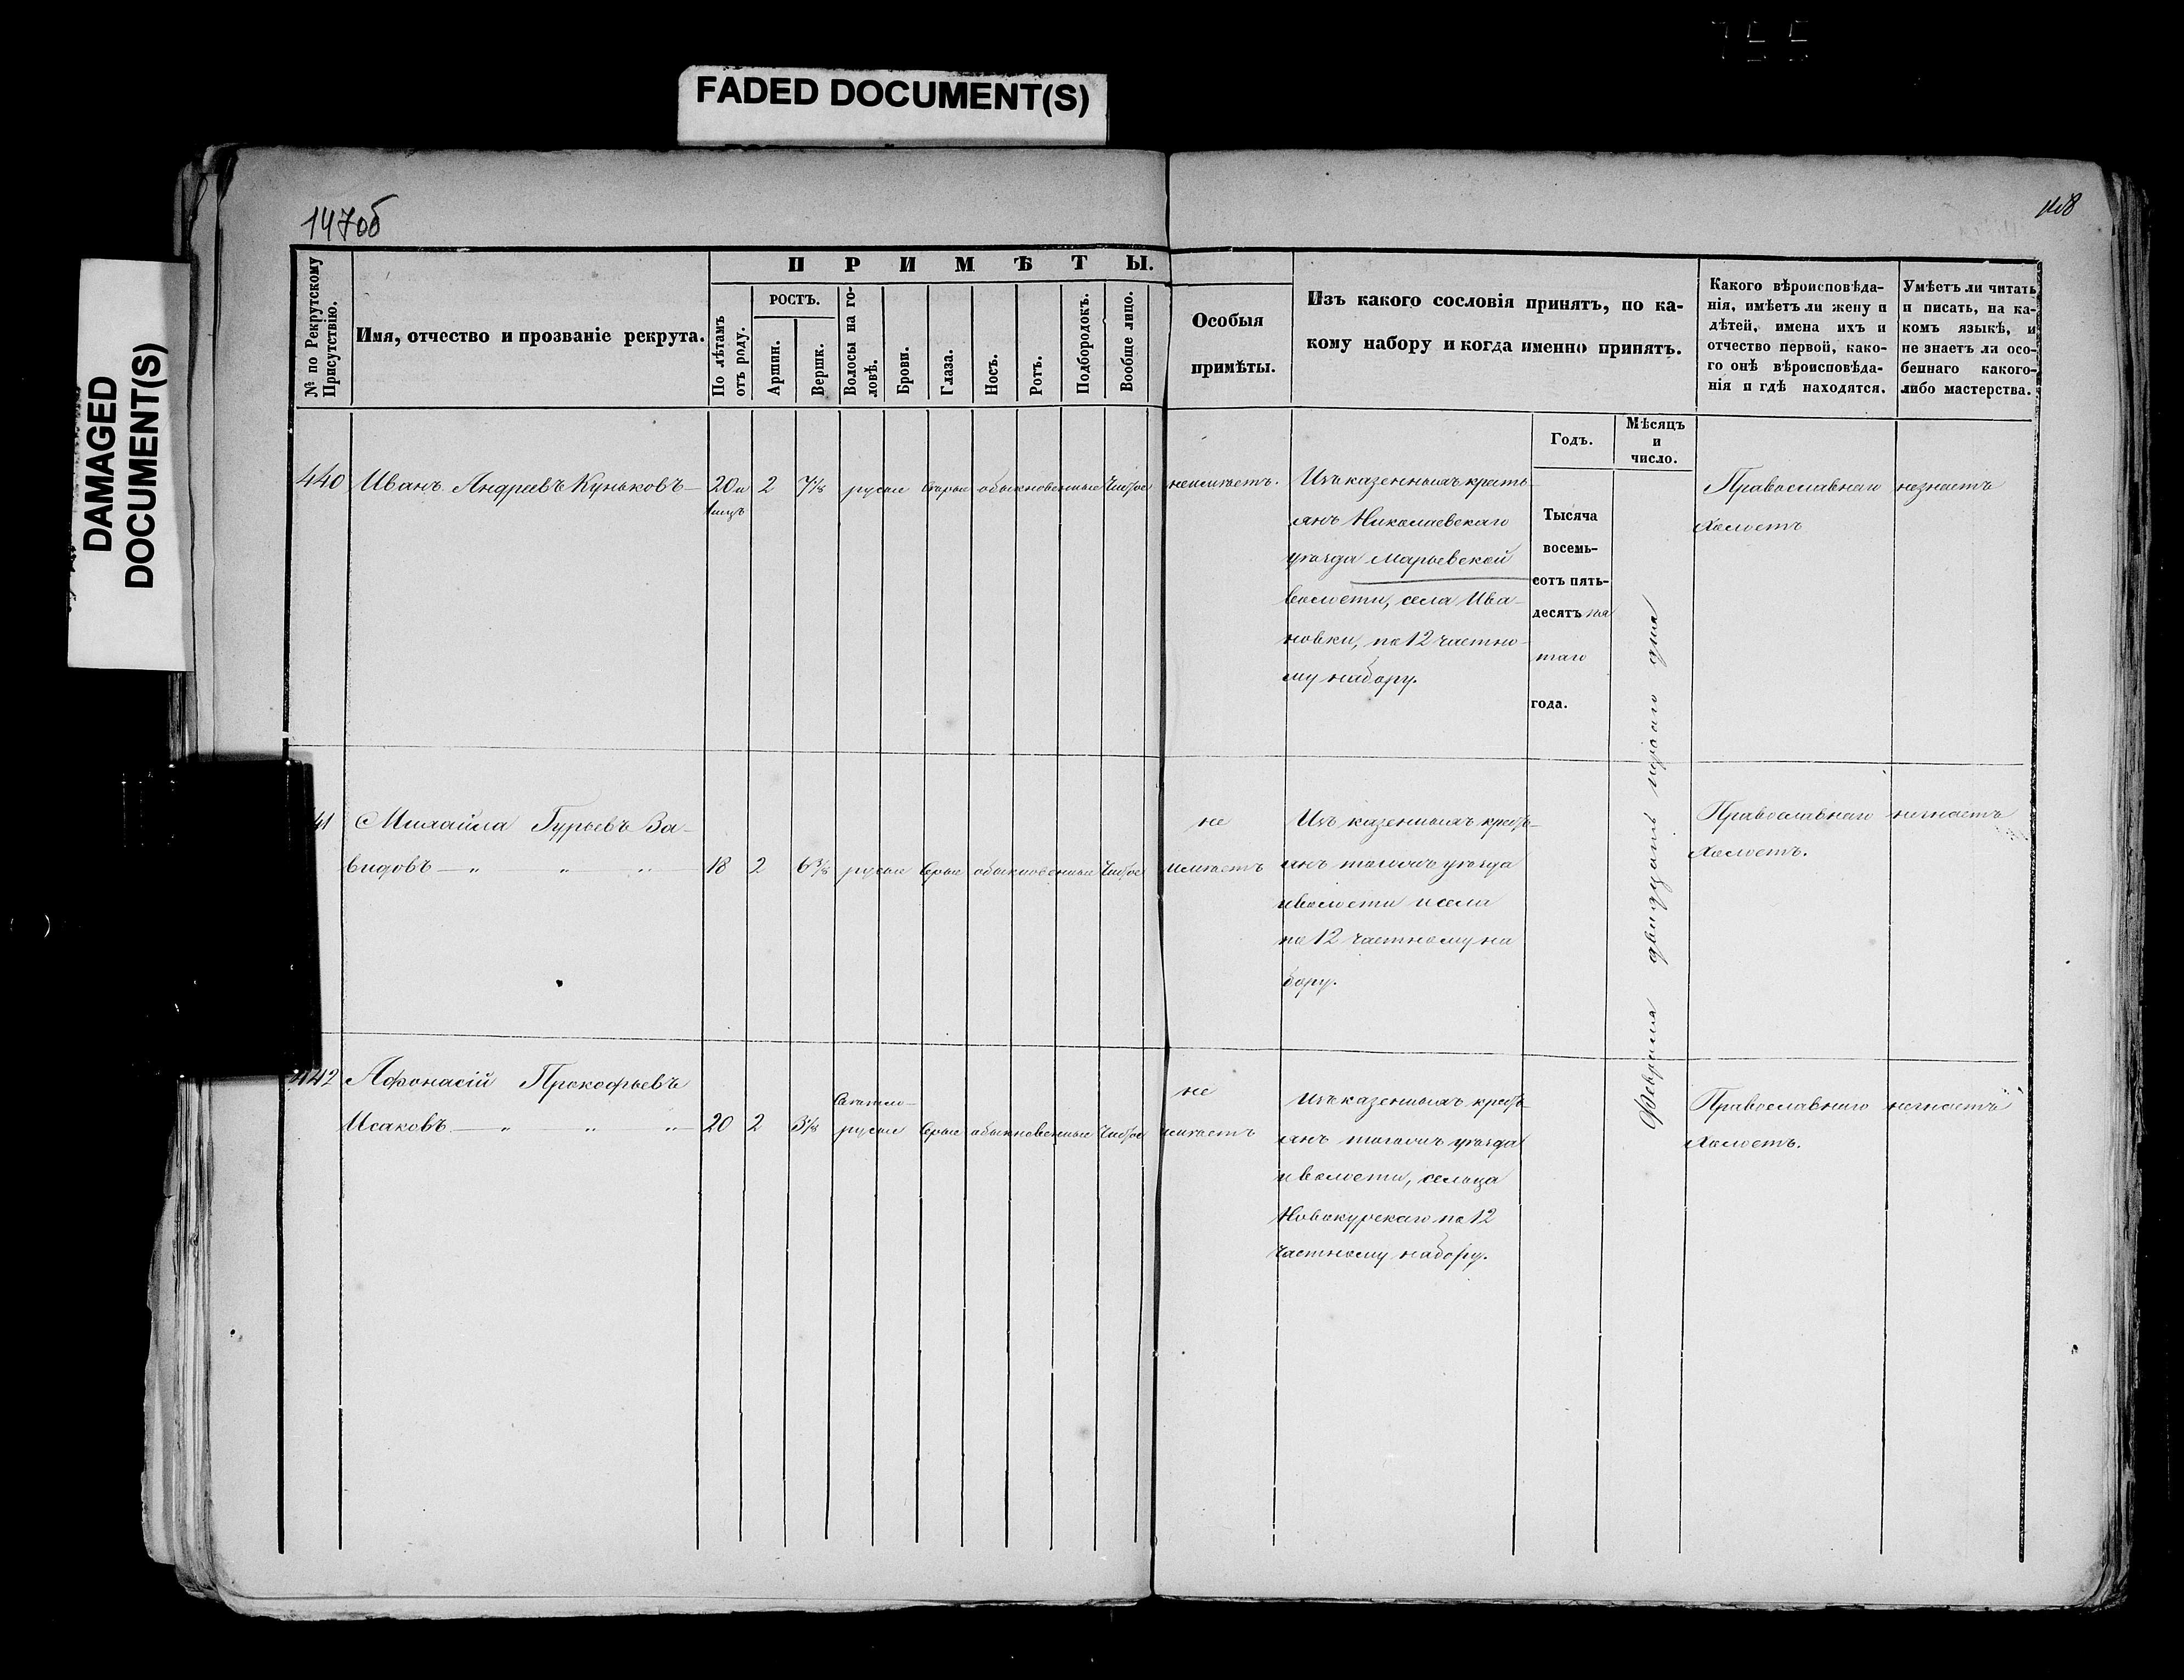 755
FADED DOCUMENT(S)
DAMAGED
DOCUMENT(S)
147об
148
№ по Рекрутскому
Присутствію.
Имя, отчество и прозваніе рекрута.
ПРИМѢТЫ.
По лѣтамъ
отъ роду.
РОСТЪ.
Аршин.
Вершк.
Волосы на го-
ловѣ.
Брови.
Глаза.
Носъ.
Ротъ.
Подбородокъ.
Вообще лицо.
Особыя
примѣты.
Изъ какого сословія принятъ, по ка-
кому набору и когда именно принятъ.
Какого вѣроисповѣда-
нія, имѣетъ ли жену и
дѣтей, имена ихъ и
отчество первой, како-
го онѣ вѣроисповѣда-
нія и гдѣ находятся.
Умѣетъ ли читать
и писать, на ка-
комъ языкѣ, и
не знаетъ ли осо-
беннаго какого-
либо мастерства.
Годъ.
Мѣсяцъ
и
число.
440 Иванъ Андреевъ Куньковъ 20 и 2 7 1/8 русые сѣрые обыкновенные чистое неимѣетъ.
1 мцъ
Изъ казенныхъ кресть
янъ Николаевскаго
уѣзда Марьевской
волости, села Ива-
новки, по 12 частно-
му набору.
Тысяча
восемь-
сотъ пять-
десятъ пя
таго
года.
Февраля двадцать перваго дня
Православнаго незнаетъ
Холостъ
41 Михайла Гурьевъ За-
видовъ 18 2 6 3/8 русые сѣрые обыкновенные чистое
не
имѣетъ
Изъ казенныхъ кресть-
янъ тогожъ уѣзда
и волости и села
по 12 частному на
бору.
Православнаго незнаетъ
Холостъ.
442 Афонасій Прокофьевъ
Исаковъ 20 2 3 1/8 свѣтло-
русые сѣрые обыкновенные чистое
не
имѣетъ
Изъ казенныхъ кресть-
янъ тогожъ уѣзда
и волости, сельца
Новокурскаго по 12
частному набору.
Православнаго незнаетъ
Холостъ.